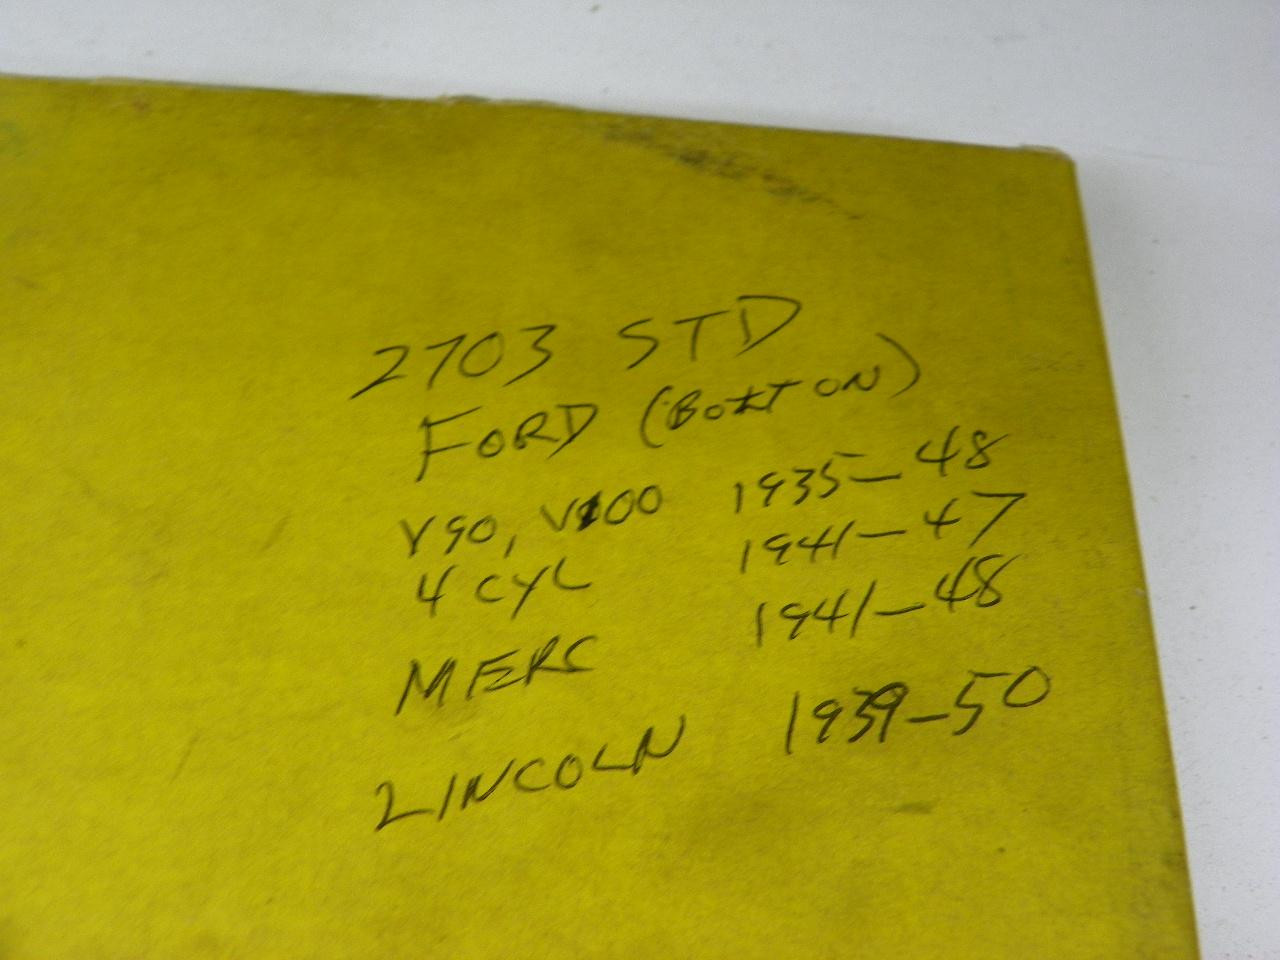 2703 STD
FORD (BOLT ON)
V90, V100 1935-48
4 CYL 1941-47
MERC 1941-48
LINCOLN 1939-50